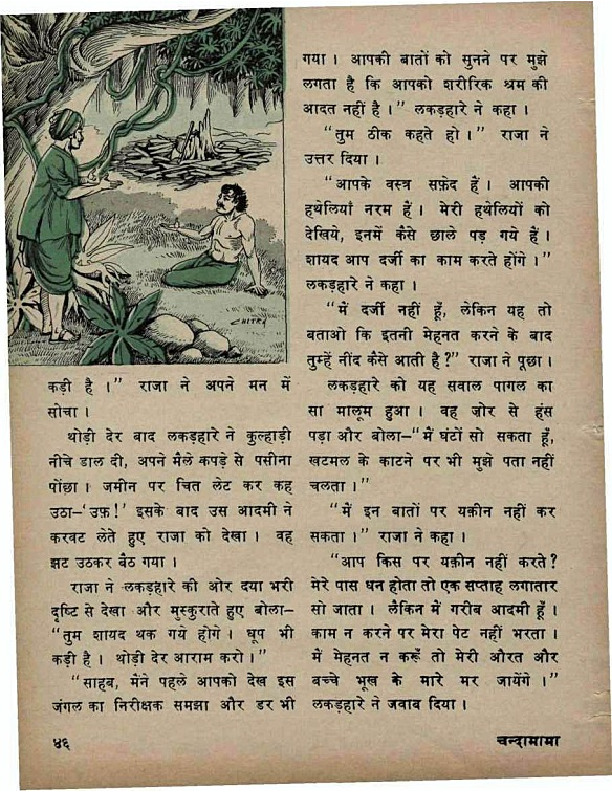 CHITRA
कड़ी है ।” राजा ने अपने मन में
सोचा ।
थोड़ी देर बाद लकड़हारे ने कुल्हाड़ी
नीचे डाल दी, अपने मैले कपड़े से पसीना
पोंछा । जमीन पर चित लेट कर कह
उठा–‘उफ़!’ इसके बाद उस आदमी ने
करवट लेते हुए राजा को देखा । वह
झट उठकर बैठ गया ।
राजा ने लकड़हारे की ओर दया भरी
दृष्टि से देखा और मुस्कुराते हुए बोला–
“तुम शायद थक गये होगे । धूप भी
कड़ी है । थोड़ी देर आराम करो ।”
“साहब, मैंने पहले आपको देख इस
जंगल का निरीक्षक समझा और डर भी
गया । आपकी बातों को सुनने पर मुझे
लगता है कि आपको शरीरिक श्रम की
आदत नहीं है ।” लकड़हारे ने कहा ।
“तुम ठीक कहते हो ।” राजा ने
उत्तर दिया ।
“आपके वस्त्र सफ़ेद हैं । आपकी
हथेलियाँ नरम हैं । मेरी हथेलियों को
देखिये, इनमें कैसे छाले पड़ गये हैं ।
शायद आप दर्जी का काम करते होंगे ।”
लकड़हारे ने कहा ।
“में दर्जी नहीं हूँ, लेकिन यह तो
बताओ कि इतनी मेहनत करने के बाद
तुम्हें नींद कैसे आती है ?” राजा ने पूछा ।
लकड़हारे को यह सवाल पागल का
सा मालूम हुआ । वह ज़ोर से हंस
पड़ा और बोला–“में घंटों सो सकता हूँ,
खटमल के काटने पर भी मुझे पता नहीं
चलता ।”
“में इन बातों पर यक़ीन नहीं कर
सकता ।” राजा ने कहा ।
“आप किस पर यक़ीन नहीं करते ?
मेरे पास धन होता तो एक सप्ताह लगातार
सो जाता । लेकिन में गरीब आदमी हूँ ।
काम न करने पर मेरा पेट नहीं भरता ।
में मेहनत न करूँ तो मेरी औरत और
बच्चे भूख के मारे मर जायेंगे ।”
लकड़हारे ने जवाब दिया ।
४६
चन्दामामा